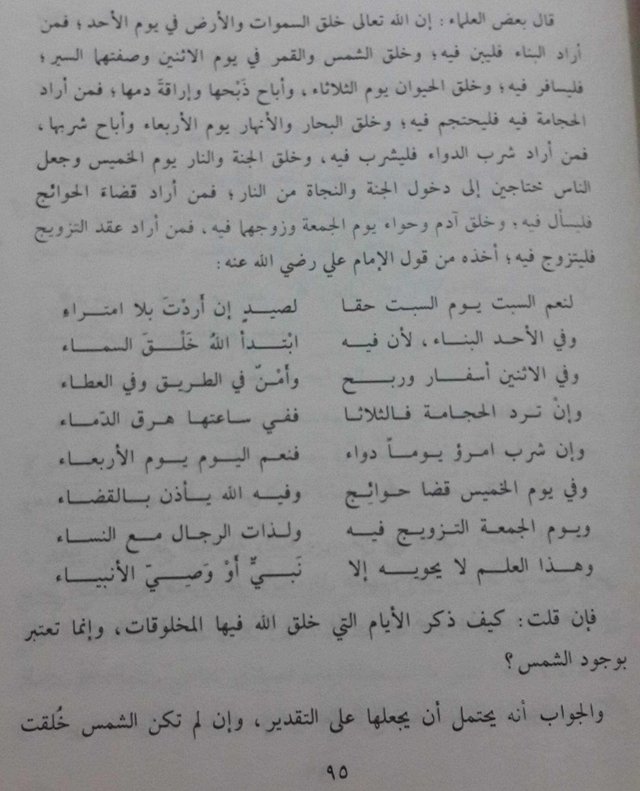 قال بعض العلماء: إن الله تعالى خلق السموات والأرض في يوم الأحد؛ فمن
أراد البناء فليبن فيه؛ وخلق الشمس والقمر في يوم الاثنين وصفتهما السير؛
فليسافر فيه؛ وخلق الحيوان يوم الثلاثاء، وأباح ذَبْحها وإراقةَ دمها؛ فمن أراد
الحجامة فيه فليحتجم فيه؛ وخلق البحار والأنهار يوم الأربعاء وأباح شربها،
فمن أراد شرب الدواء فليشرب فيه، وخلق الجنة والنار يوم الخميس وجعل
الناس محتاجين إلى دخول الجنة والنجاة من النار؛ فمن أراد قضاءَ الحوائج
فليسأل فيه؛ وخلق آدم وحواء يوم الجمعة وزوجهما فيه، فمن أراد عقد التزويج
فليتزوج فيه؛ أخذه من قول الإمام علي رضي الله عنه:
لنعم السبت يوم السبت حقا لصيدٍ إن أردْتَ بلا امتراءِ
وفي الأحد البناء، لأن فيه ابْتدأ اللهُ خَلْقَ السماء
وفي الاثنين أسفار وربح وأمْنٌ في الطريق وفي العطاء
وإنْ ترد الحجامة فالثلاثا ففي ساعتها هرق الدّماء
وإن شرب امرؤ يوماً دواء فنعم اليوم يوم الأربعاء
وفي يوم الخميس قضا حوائِج وفيه الله يأذن بالقضاء
ويوم الجمعة التزويج فيه ولذات الرجال مع النساء
وهذا العلم لا يحويه إلا نَبيٌّ أوْ وَصِيّ الأنبياء
فإن قلت: كيف ذكر الأيام التي خلق الله فيها المخلوقات، وإنما تعتبر
بوجود الشمس؟
والجواب أنه يحتمل أن يجعلها على التقدير، وإن لم تكن الشمس خُلقت
٩٥